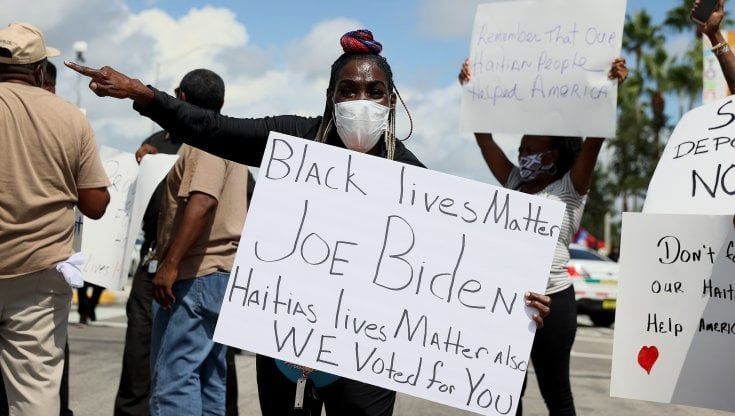 Black lives Matter
JOE Biden
Haitias lives Matter also
WE Voted for You
Remember That Our
Haitian People
Helped America
DEPO
NO
Don't
our Hait
Help Americ
lives